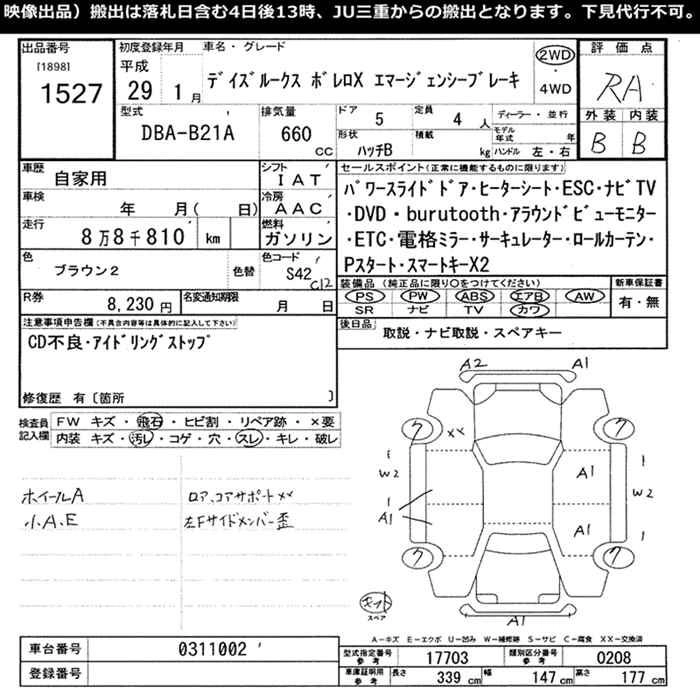 映像出品）搬出は落札日含む4日後13時、JU三重からの搬出となります。下見代行不可。
出品番号
[1898]
1527
初度登録年月
平成
29 1月
車名・グレード
デイズルークス ボレロX エマージェンシーブレーキ
2WD
・
4WD
評価点
RA
外装 内装
B B
型式
DBA-B21A
排気量
660
CC
ドア
5
定員
4人
形状
ハッチB
積載
kg
ディーラー・並行
モデル年式 年
ハンドル 左・右
車歴
自家用
シフト
IAT
車検
年 月( 日)
冷房
AAC
走行
8万8千810 km
燃料
ガソリン
色
ブラウン2
色替
色コード
S42
C12
R券
8,230円
名変通知期限
月 日
セールスポイント(正常に機能するものに限ります)
パワースライドドア・ヒーターシート・ESC・ナビTV
・DVD・burutooth・アラウンドビューモニター
・ETC・電格ミラー・サーキュレーター・ロールカーテン・
Pスタート・スマートキーX2
装備品(純正品に限り○をつけてください)
PS PW ABS エアB AW
SR ナビ TV カワ
新車保証書
有・無
後日品
取説・ナビ取説・スペアキー
注意事項申告欄(不具合内容等は具体的に記入して下さい)
CD不良・アイドリングストップ
修復歴 有〔箇所 〕
検査員
記入欄
FW キズ・飛石・ヒビ割・リペア跡・×要
内装 キズ・汚レ・コゲ・穴・スレ・キレ・破レ
ホイールA
小A、E
ロア、コアサポート××
左Fサイドメンバー歪
A2 A1
ク ク
××
1 1
W2 A1 W2
1 1
A1 A1
ク ク
スペア
A1
A－キズ E－エクボ U－凹み W－補修跡 S－サビ C－腐食 XX－交換済
車台番号
0311002
登録番号
型式指定番号
参考
17703
類別区分番号
参考
0208
車庫証明用
参考
長さ 339 cm 幅 147 cm 高さ 177 cm